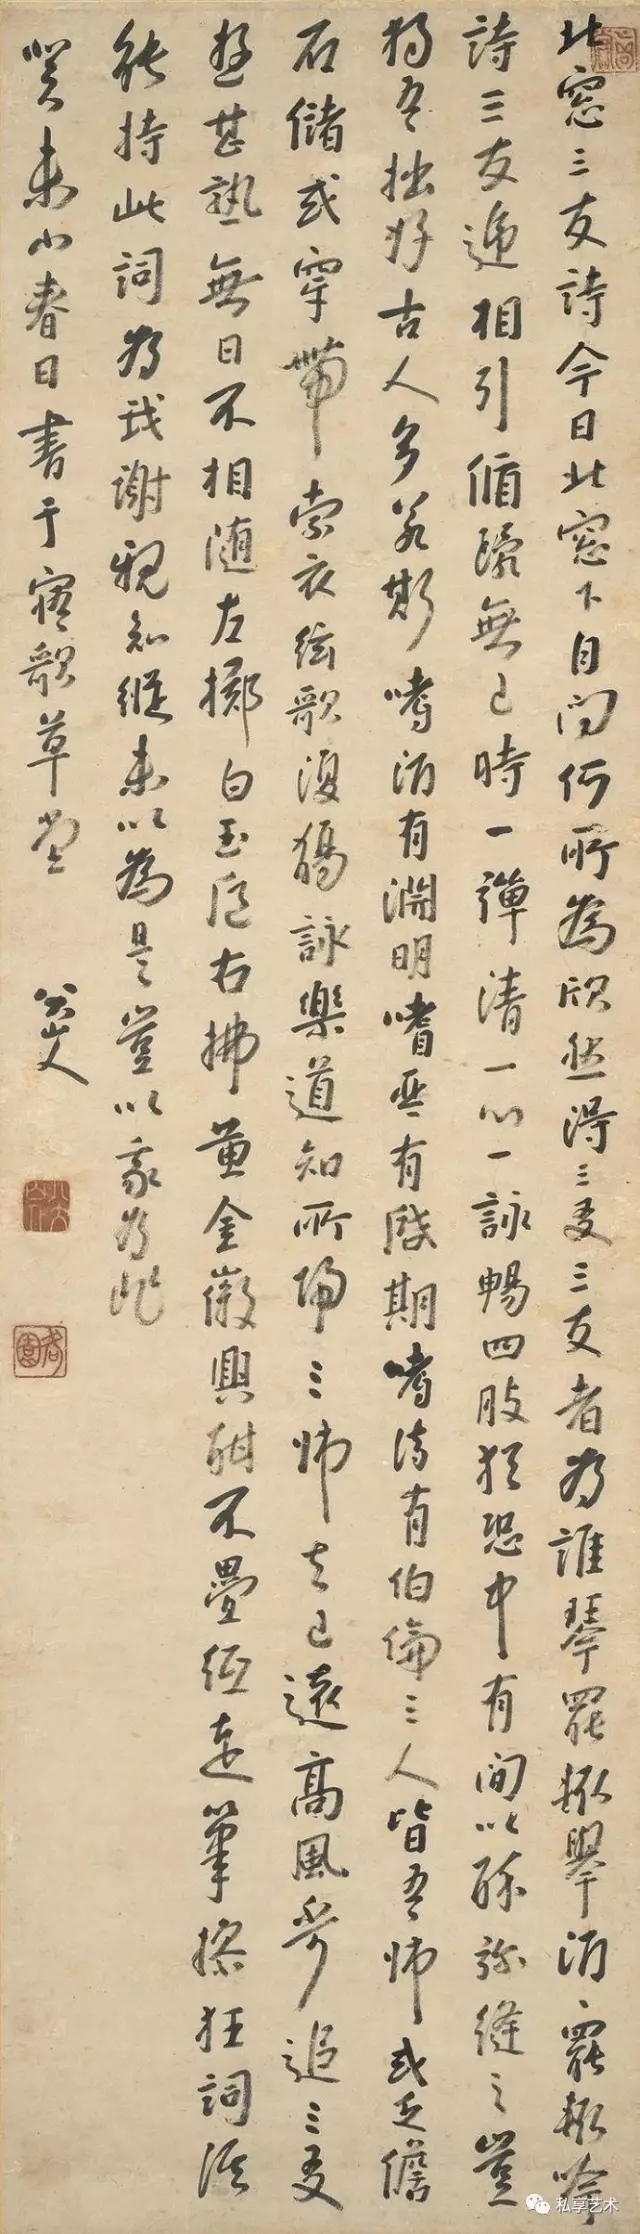 北窓三友詩今日北窓下自问何所為欣然得三友三友者为誰琴罷輒舉酒ヽ罷輒吟
詩三友遞相引循環無已時一彈清一心一詠暢四肢猶恐中有间以酔弥縫之豈
獨吾拙好古人多若斯嗜酒有淵明嗜琴有啟期嗜诗有伯倫三人皆吾师或乏儋
石儲或穿帶索衣絃歌復觴詠樂道知所歸三师去已遠高風不可追三友
遊甚熟無日不相随左擲白玉卮右拂黃金徽興酣不疊紙走筆操狂詞誰
能持此詞为我謝親知縱未以為是豈以我为非
癸未小春日書于寤歌草堂 八大山人
私享艺术